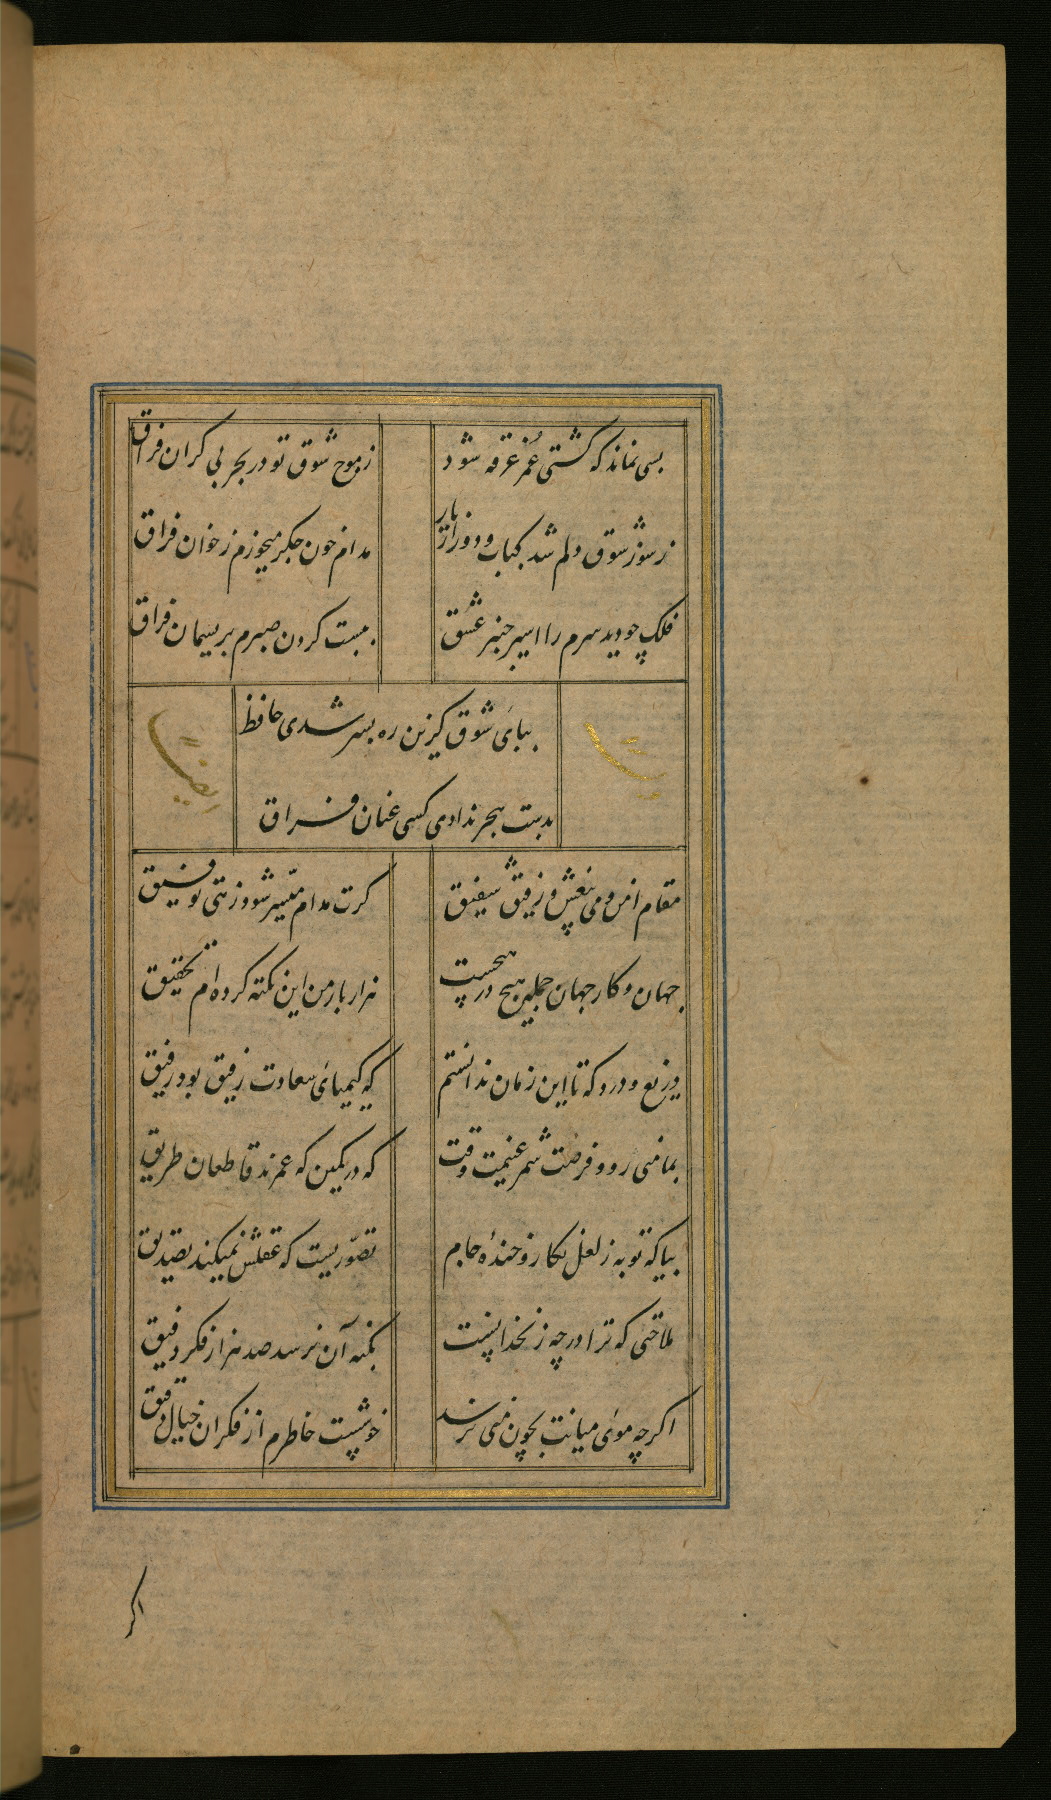 بسی نماند که کشتی عمر غرقه شود
ز موج شوق تو در بحر بی کران فراق
ز سوز شوق دلم شد کباب و دور از یار
مدام خون جکر میخورم ز خوان فراق
فلک چو دید سرم را اسیر چنبر عشق
ببست کردن صبرم بریسمان فراق
بپای شوق کر این ره بسر شدی حافظ
بدست هجر ندادی کسی عنان فراق
مقام امن و می بیغش و رفیق شفیق
کرت مدام میسر شود زهی توفیق
جهان و کار جهان جمله هیچ در هیچست
هزار بار من این نکته کرده ام تحقیق
دریغ و درد که تا این زمان ندانستم
که کیمیای سعادت رفیق بود رفیق
بمامنی رو و فرصت شمر غنیمت وقت
که در کمین که عمرند قاطعان طریق
بیا که توبه ز لعل نکار و خنده جام
تصوریست که عقلش نمیکند تصدیق
ملاحتی که ترا در چه زنخدانست
بکنه آن نرسد صد هزار فکر دقیق
اکرچه موی میانت بچون منی نرسد
خوشست خاطرم از فکر آن خیال دقیق
اکر